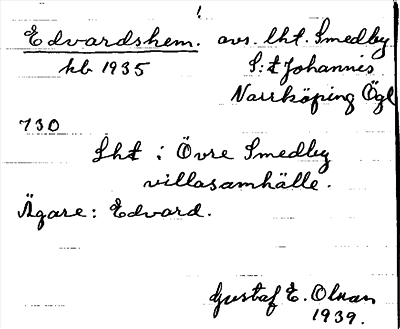 Edvardshem. avs. lht. Smedby
kb 1935 S:t Johannis
Norrköping Ögl
730
Lht i Övre Smedby
villasamhälle.
Ägare: Edvard.
Gustaf E. Olson
1939.